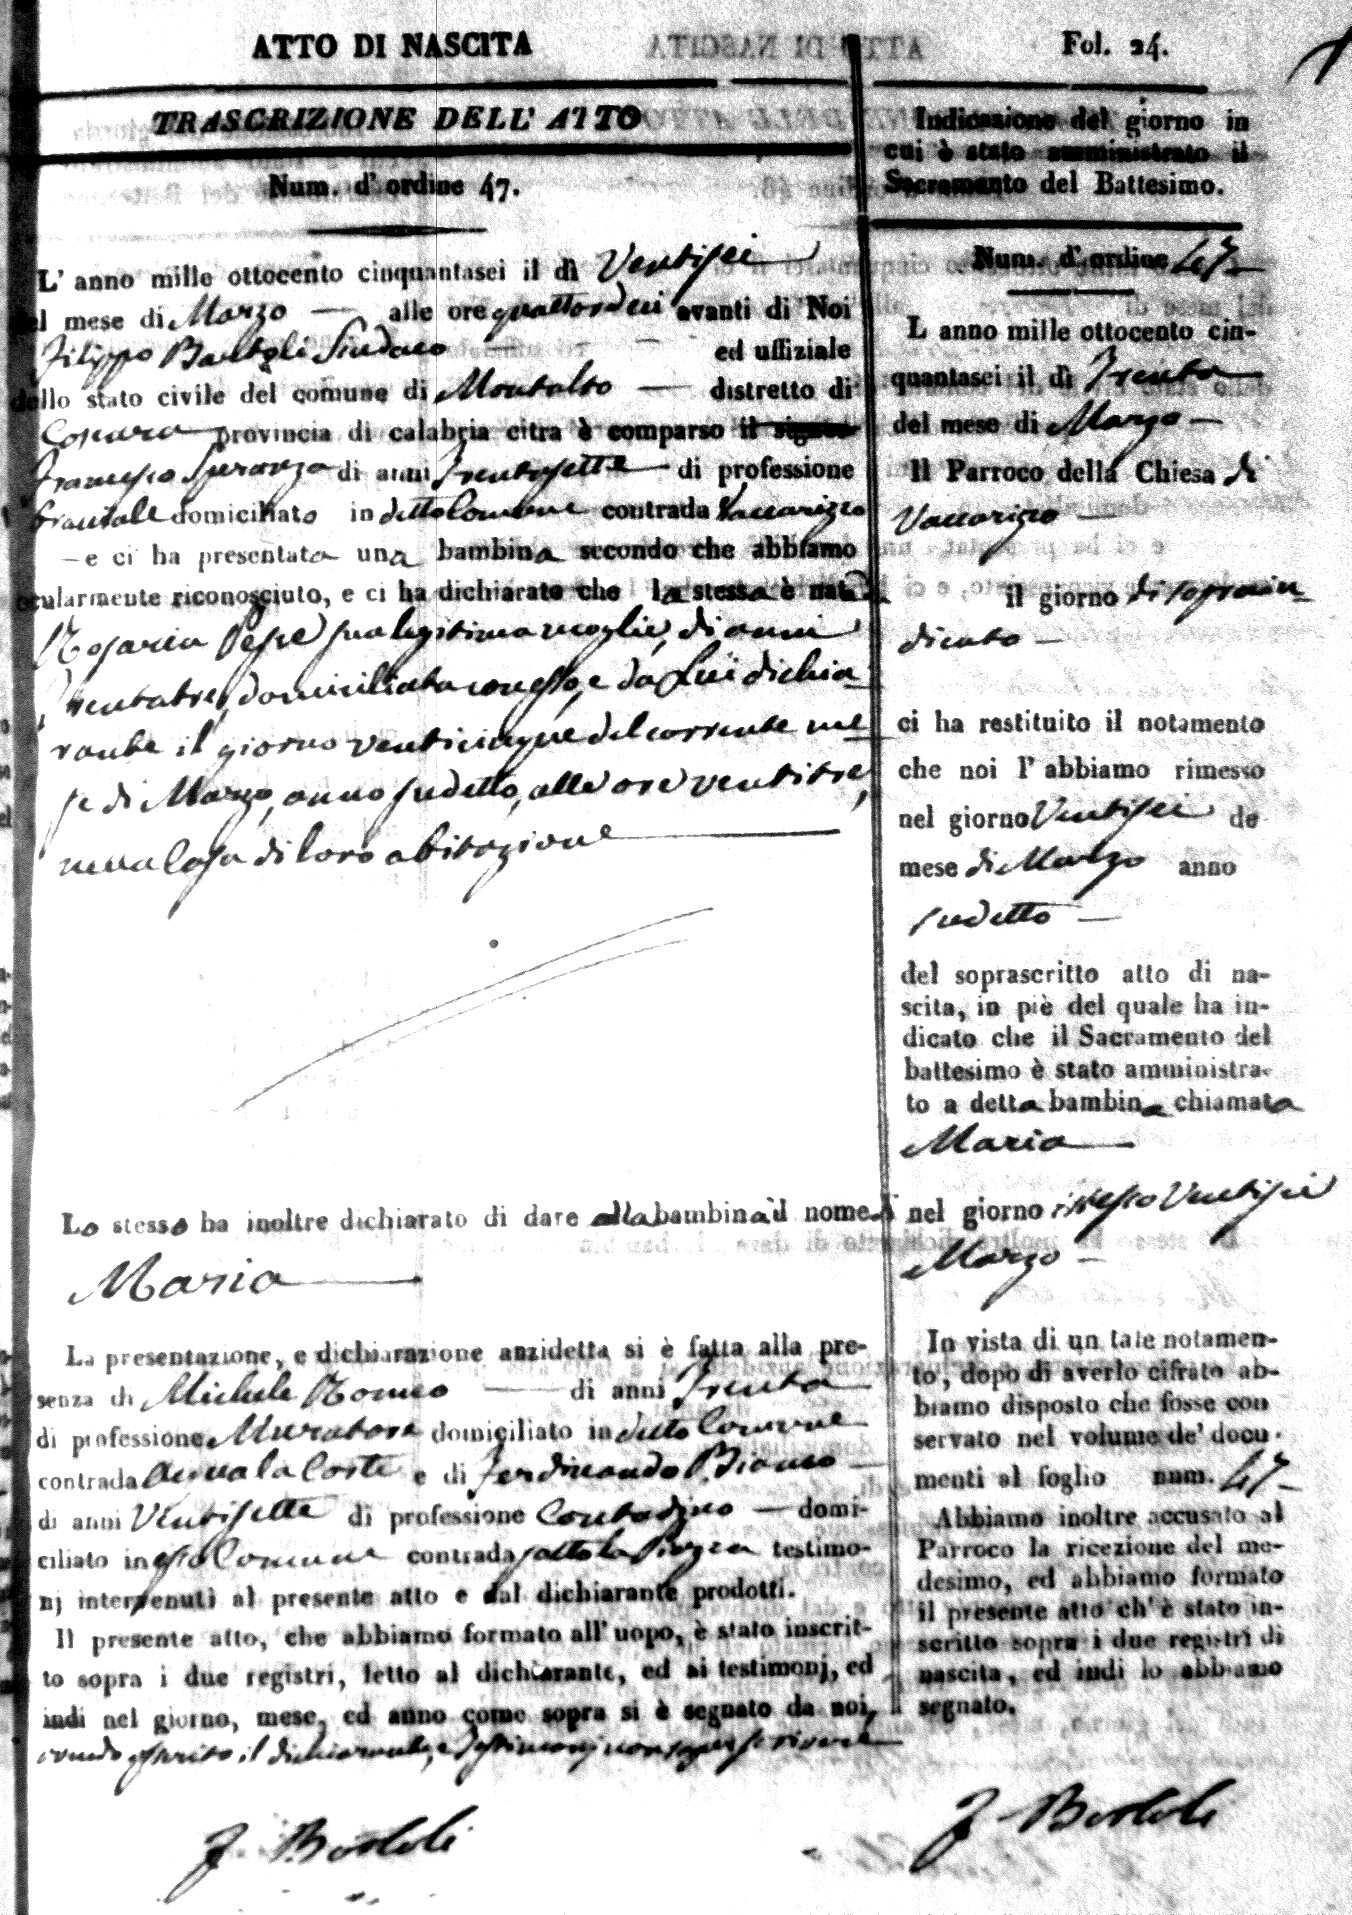 ATTO DI NASCITA
TRASCRIZIONE DELL' ATTO
Num. d' ordine 47.
L' anno mille ottocento cinquantasei il dì Ventisei
del mese di Marzo — alle ore quattordeci avanti di Noi
Filippo Sindaco — — ed uffiziale
dello stato civile del comune di Montalto — distretto di
Cosenza provincia di calabria citra è comparso il signor
Francesco Speranza di anni Trentasette — di professione
bracciale domiciliato in detto Comune contrada Vaccarizzo
— e ci ha presentata una bambina secondo che abbiamo
ocularmente riconosciuto, e ci ha dichiarato che la stessa è nata da
Rosaria Pepe sua legitima moglie, di anni
trentatre, domiciliata con esso, e da Lui dichia-
rante il giorno venticinque del corrente me-
se di Marzo, anno sudetto, alle ore ventitre,
nella Casa di loro abitazione —
Lo stesso ha inoltre dichiarato di dare alla bambina il nome di
Maria —
La presentazione, e dichiarazione anzidetta si è fatta alla pre-
senza di Michele Romeo — di anni Trenta
di professione Muratore domiciliato in detto Comune
contrada Coste e di Ferdinando Bianco —
di anni Ventisette di professione Contadino — domi-
ciliato in esso Comune contrada sotto la Piazza testimo-
nj intervenuti al presente atto e dal dichiarante prodotti.
Il presente atto, che abbiamo formato all' uopo, è stato inscrit-
to sopra i due registri, letto al dichiarante, ed ai testimonj, ed
indi nel giorno, mese, ed anno come sopra si è segnato da noi,
avendo asserito il dichiarante, e Testimonj non saper scrivere
Fol. 24.
Indicazione del giorno in
cui è stato amministrato il
Sacramento del Battesimo.
Num. d' ordine 47—
L anno mille ottocento cin-
quantasei il dì Trenta
del mese di Marzo —
Il Parroco della Chiesa di
Vaccarizzo —
il giorno di sopra in-
dicato —
ci ha restituito il notamento
che noi l' abbiamo rimesso
nel giorno Ventisei de
mese di Marzo anno
sudetto —
del soprascritto atto di na-
scita, in piè del quale ha in-
dicato che il Sacramento del
battesimo è stato amministra-
to a detta bambina chiamata
Maria —
nel giorno istesso Ventisei
Marzo —
In vista di un tale notamen-
to, dopo di averlo cifrato ab-
biamo disposto che fosse con
servato nel volume de' docu-
menti al foglio num. 47—
Abbiamo inoltre accusato al
Parroco la ricezione del me-
desimo, ed abbiamo formato
il presente atto ch' è stato in-
scritto sopra i due registri di
nascita, ed indi lo abbiamo
segnato.